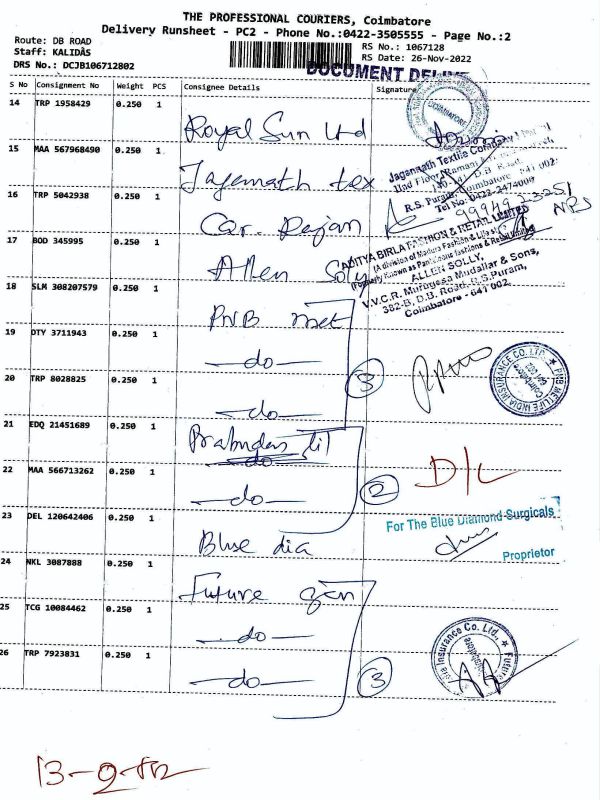 THE PROFESSIONAL COURIERS, Coimbatore
Delivery Runsheet - PC2 - Phone No.:0422-3505555 - Page No.:2
Route: DB ROAD
Staff: KALIDÂS
DRS No.: DCJB106712802
RS No.: 1067128
RS Date: 26-Nov-2022
DOCUMENT
S No Consignment No Weight PCS Consignee Details Signature
14 TRP 1958429 0.250 1 Royal Sun Ltd
15 MAA 567968490 0.250 1 Jagannath tex
Jagannath Textile Company
R.S. Puram, Coimbatore - 641 002.
Tel No: 0422-2474000
16 TRP 5042938 0.250 1 Car. Rajan
99949 23251
NPS
17 BOD 345995 0.250 1 Allen Solly
ADITYA BIRLA FASHION & RETAIL LIMITED
(A division of Madura Fashion & Lifestyle)
(Formerly Known as Pantaloons fashions & Retail
ALLEN SOLLY,
V.V.C.R. Murugesa Mudaliar & Sons,
382-B, D.B. Road, R.S.Puram,
Coimbatore - 641 002.
18 SLM 308207579 0.250 1 PNB met
19 DTY 3711943 0.250 1 -do-
20 TRP 8028825 0.250 1 -do-
3
PNB METLIFE INDIA INSURANCE CO. LTD.
Coimbatore
641 002
21 EDQ 21451689 0.250 1 Prabudas lil
do
22 MAA 566713262 0.250 1 -do-
2
D/L
23 DEL 120642406 0.250 1 Blue dia
For The Blue Diamond Surgicals
Proprietor
24 NKL 3087888 0.250 1 Future gen
25 TCG 10084462 0.250 1 -do-
26 TRP 7923831 0.250 1 -do-
3
Insurance Co. Ltd., Future
Coimbatore